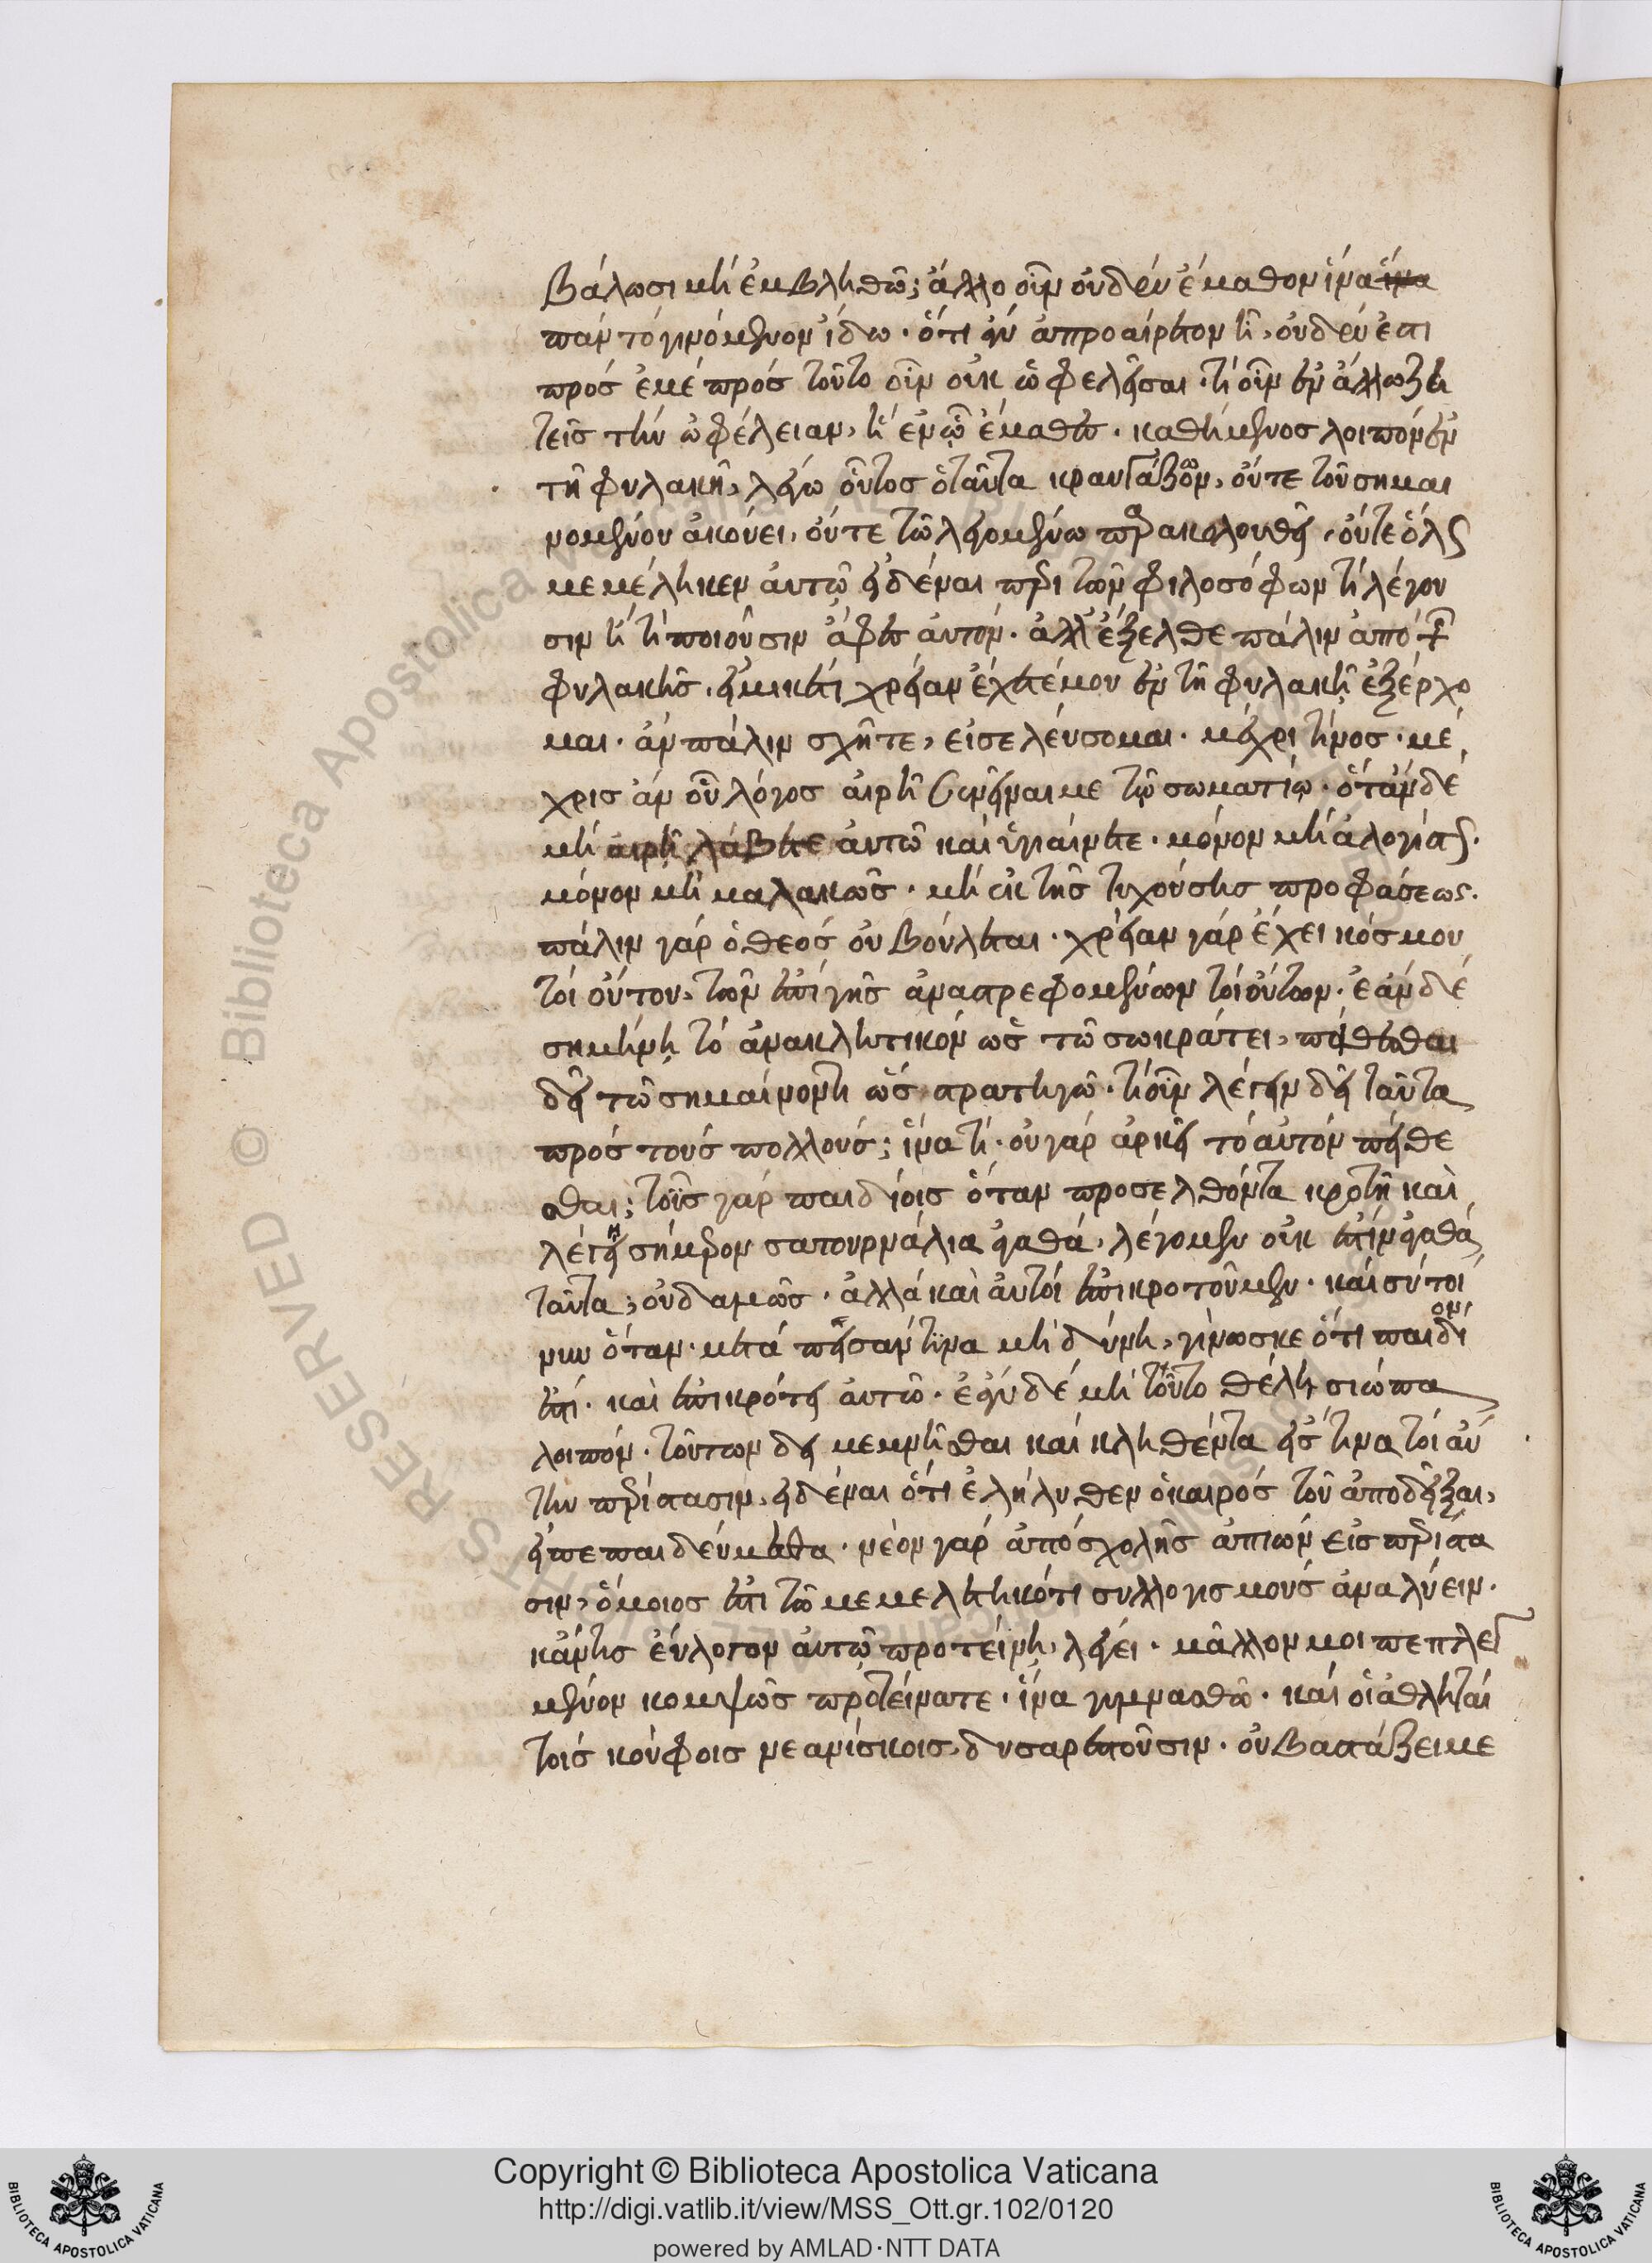 βάλωσι μὴ ἐμβληθῶ; ἄλλο οὖν οὐδὲν ἔμαθον ἵνα ἵνα
πᾶν τὸ γινόμενον ἴδω· ὅτι ἂν ἀπροαίρετον ᾖ, οὐδέν ἐστι
πρὸς ἐμέ πρὸς τοῦτο οὖν οὐκ ὠφέλησαι· τί οὖν ἐν ἄλλω ζη
τεῖς τὴν ὠφέλειαν, ἢ ἐν ᾧ ἔμαθες· καθήμενος λοιπὸν ἐν
τῇ φυλακῇ, λέγω οὗτος ὁ ταῦτα κραυγάζων, οὔτε τοῦ σημαι
νομένου ἀκούει, οὔτε τῶ λεγομένω παρακολουθεῖ, οὔτε ὅλως
μεμέληκεν αὐτῷ εἰδέναι περὶ τῶν φιλοσόφων τί λέγου
σιν ἢ τί ποιοῦσιν ἄφες αὐτόν· ἀλλ' ἔξελθε πάλιν ἀπὸ τῆς
φυλακῆς, εἰ μηκέτι χρείαν ἔχετέ μου ἐν τῇ φυλακῇ ἐξέρχο
μαι· ἂν πάλιν σχῆτε, εἰσελεύσομαι· μέχρι τίνος· μέ
χρις ἂν οὗ λόγος αἱρῇ συνεῖναί με τῷ σωματίῳ· ὅταν δὲ
μὴ αἱρῇ λάβετε αὐτῶ καὶ ὑγιαίνετε· μόνον μὴ ἀλογίστως·
μόνον μὴ μαλακῶς· μὴ ἐκ τῆς τυχούσης προφάσεως.
πάλιν γὰρ ὁ θεὸς οὐ βούλεται· χρείαν γὰρ ἔχει κόσμου
τοιούτου, τῶν ἐπὶ γῆς ἀναστρεφομένων τοιούτων· ἐὰν δὲ
σημήνῃ τὸ ἀνακλητικὸν ὡς τῶ σωκράτει, πείθεσθαι
δεῖ τῶ σημαίνοντι ὡς στρατηγῶ· τί οὖν λέγειν δεῖ ταῦτα
πρὸς τοὺς πολλούς; ἵνα τί· οὐ γὰρ ἀρκεῖ τὸ αὐτὸν πείθε
σθαι; τοῖς γὰρ παιδίοις ὅταν προσελθόντα κροτῇ καὶ
λέγῃ σήμερον σατουρνάλια ἀγαθά, λέγομεν οὐκ ἔστιν ἀγαθὰ
ταῦτα; οὐδαμῶς· ἀλλὰ καὶ αὐτοὶ ἐπικροτοῦμεν· καὶ σὺ τοί
νυν ὅταν μεταπεῖσαί τινα μὴ δύνῃ, γίνωσκε ὅτι παιδίον
ἐστί· καὶ ἐπικρότει αὐτῶ· ἐὰν δὲ μὴ τοῦτο θέλῃ σιώπα
λοιπόν· τούτων δεῖ μεμνῆσθαι καὶ κληθέντα εἴς τινα τοιαύ
την περίστασιν, εἰδέναι ὅτι ἐλήλυθεν ὁ καιρὸς τοῦ ἀποδεῖξαι,
εἰ πεπαιδεύμεθα· νέον γὰρ ἀπὸ σχολῆς ἀπιὼν εἰς περίστα
σιν, ὅμοιος ἐστὶ τῶ μεμελετηκότι συλλογισμοὺς ἀναλύειν·
κἄν τις εὔλογον αὐτῷ προτείνῃ, λέγει· μᾶλλον μοι πεπλεγ
μένον κομψῶς προτείνατε· ἵνα γυμνασθῶ· καὶ οἱ ἀθληταὶ
τοῖς κούφοις νεανίσκοις, δυσαρεστοῦσιν· οὐ βαστάζει με
Copyright © Biblioteca Apostolica Vaticana
http://digi.vatlib.it/view/MSS_Ott.gr.102/0120
powered by AMLAD·NTT DATA